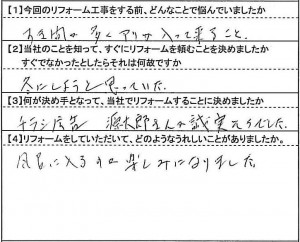 【1】今回のリフォーム工事をする前、どんなことで悩んでいましたか
お風呂間の多くアリが入って来ること。
【2】当社のことを知って、すぐにリフォームを頼むことを決めましたか
すぐでなかったとしたらそれは何故ですか
冬にしようと思っていた。
【3】何が決め手となって、当社でリフォームすることに決めましたか
チラシ広告 源太郎さんの誠実そうでした。
【4】リフォームをしていただいて、どのようなうれしいことがありましたか。
風呂に入るのが楽しみになりました